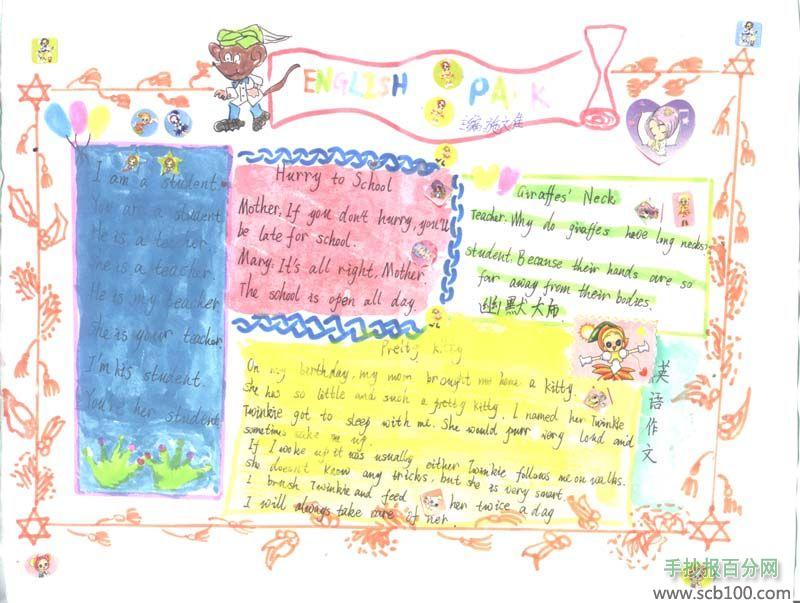 ENGLISH PA K
主编
I am a student.
You are a student
He is a teacher.
She is a teacher.
He is my teacher
she is your teacher
I'm his student.
You're her student
Hurry to School
Mother: If you don't hurry, you'll
be late for school.
Mary: It's all right, Mother.
The school is open all day.
Giraffes' Neck
Teacher: Why do giraffes have long necks?
student: Because their hands are so
far away from their bodies.
幽默大师
Pretty Kitty
On my birthday, my mom brought me home a kitty.
She was so little and such a pretty kitty. I named her Twinkie
Twinkie got to sleep with me. She would purr very loud and
sometimes wake me up.
If I woke up it was usually either Twinkie follows me on walks.
she doesn't know any tricks, but she is very smart.
I brush Twinkie and feed her twice a day
I will always take care of her.
英语作文
手抄报百分网
www.scb100.com